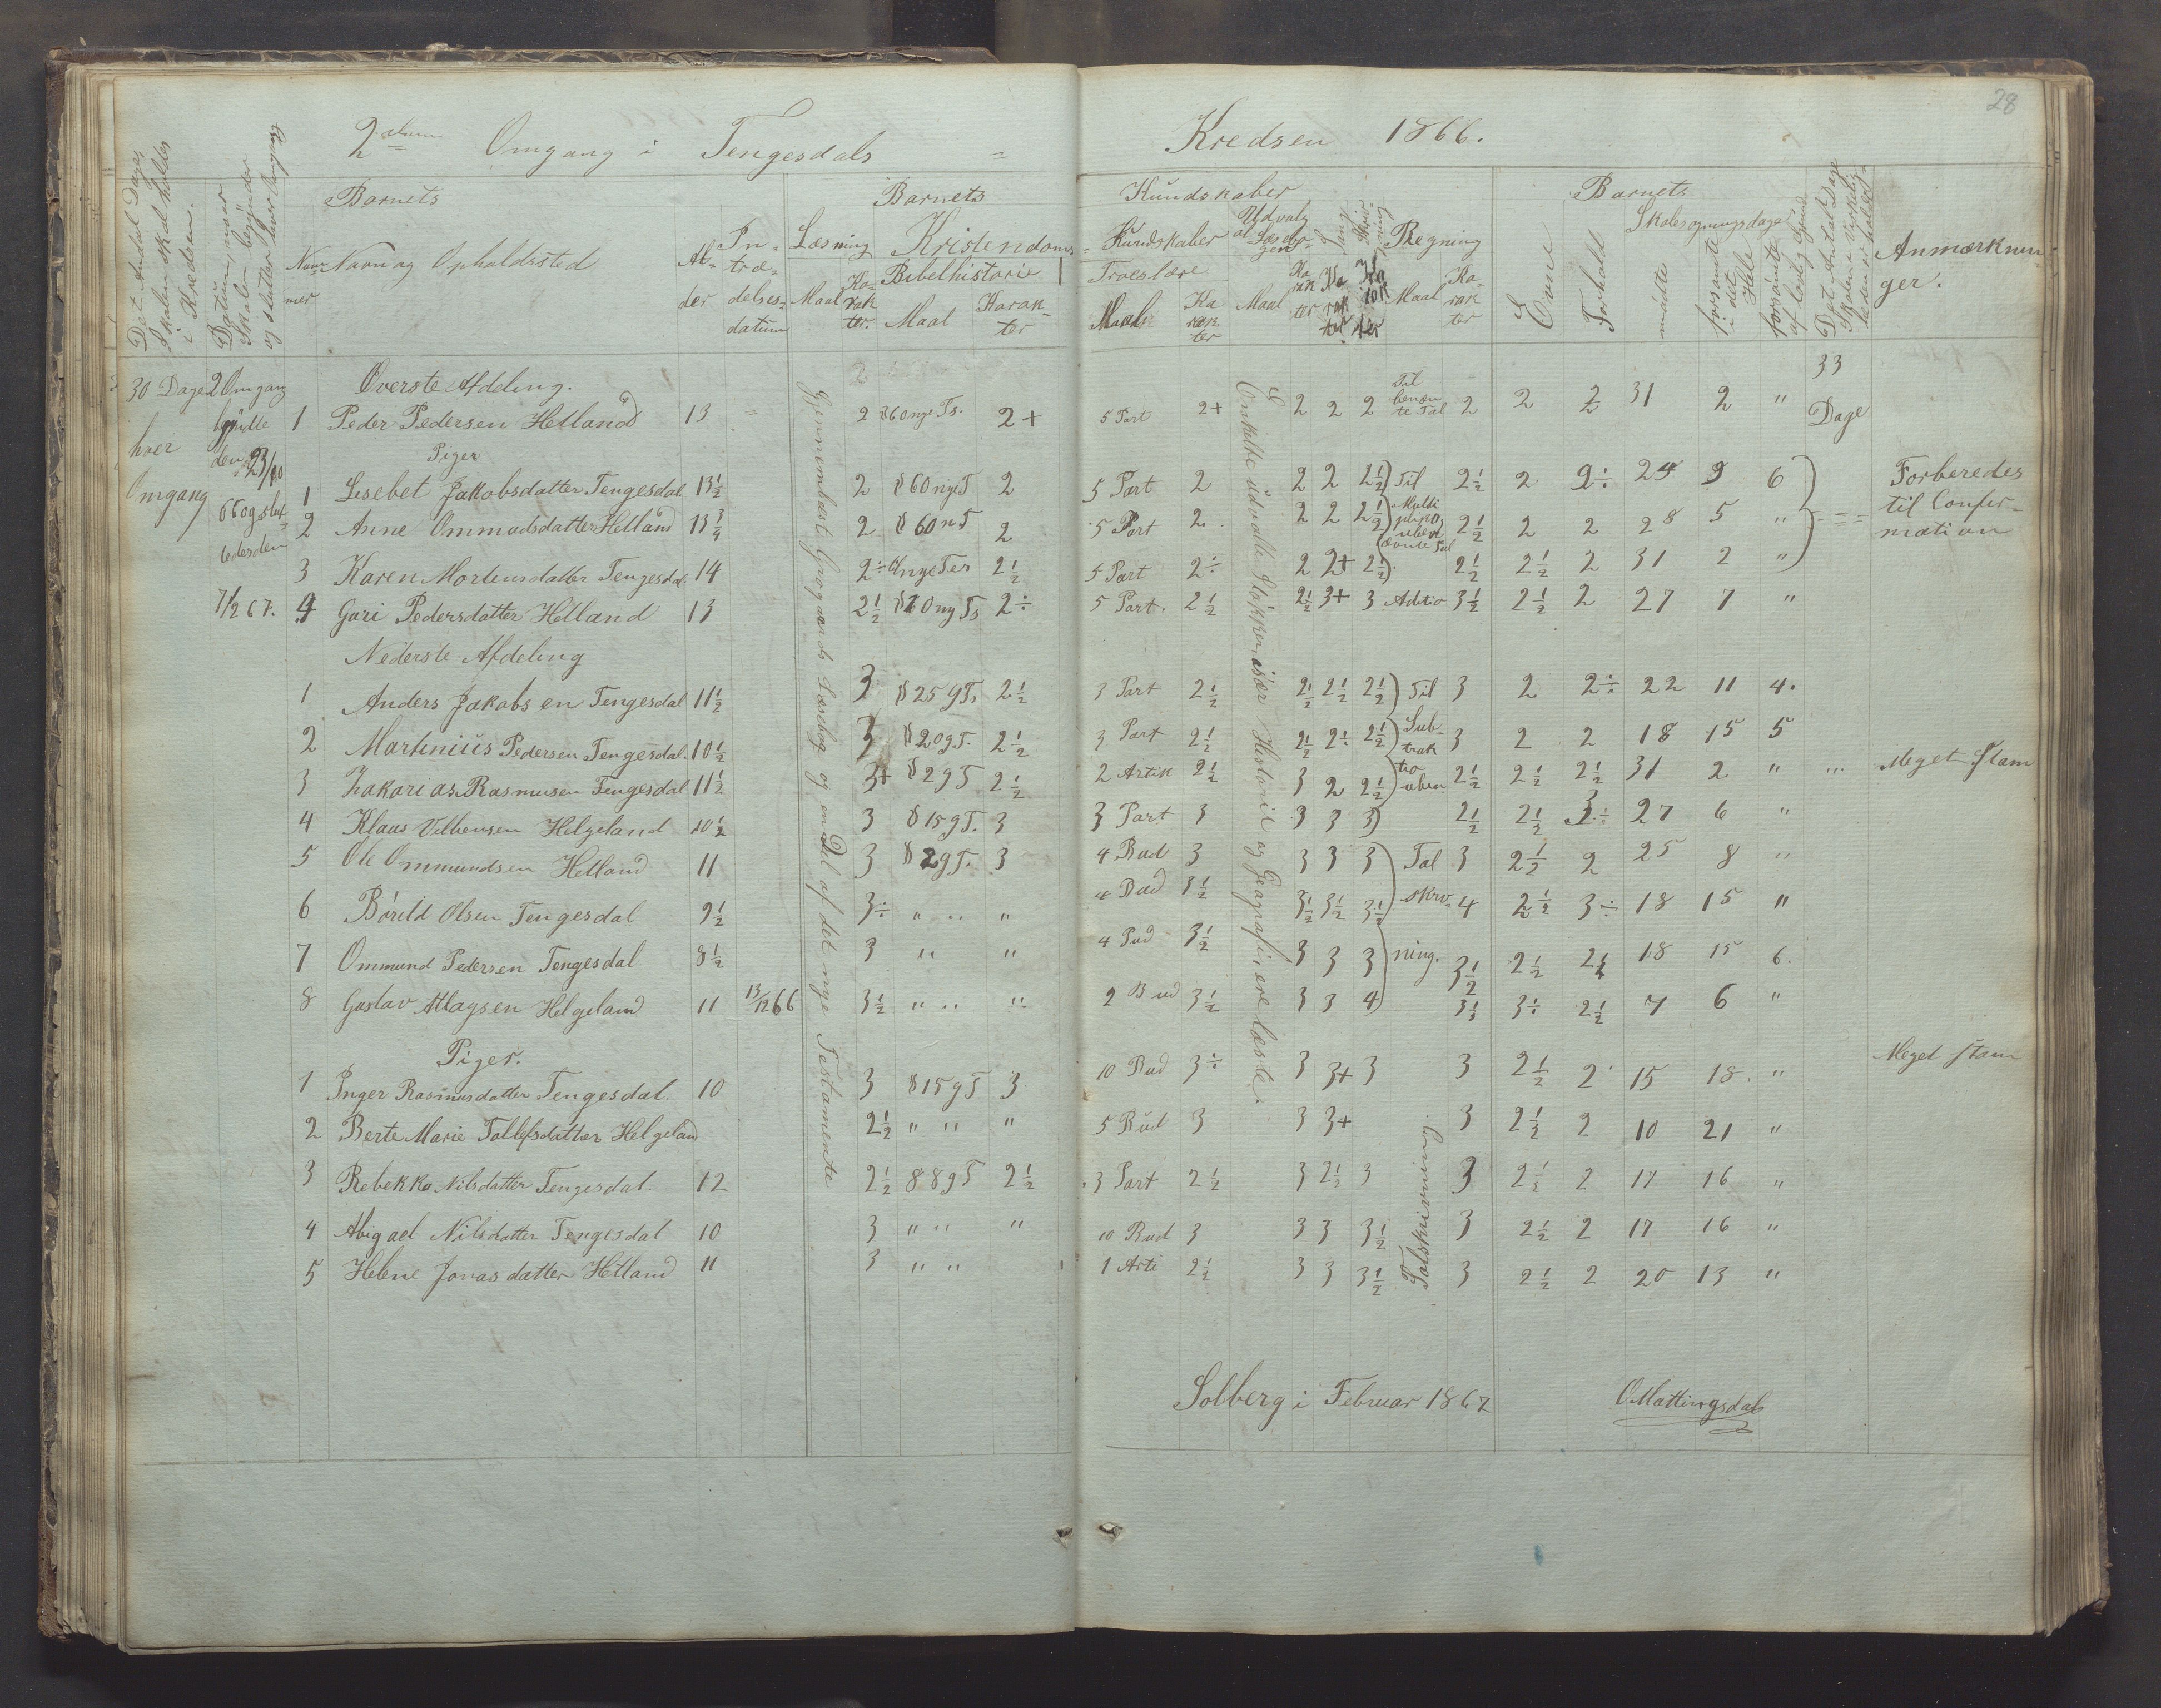 28
2den Omgang i Tengesdals = Kredsen 1866.
Det Antal Dage Skolen skal holdes i Kredsen.
Datum, naar Skolen begynder og slutter hver Omgang
Barnets
Nummer
Navn og Opholdssted
Alder
Indtrædelsesdatum
Barnets
Læsning
Maal
Karakter.
Kristendoms-
Bibelhistorie
Maal
Karakter
Kundskaber
Kundskaber
Troeslære
Maal
Karakter
Udvalg af Læsebogen
Maal
Karakter
Sang
Karakter
Skrivning
Karakter
Regning
Maal
Karakter
Barnets
Evne
Forhold
Skolesøgningsdage
mødte
forsømte i det Hele
forsømte af lovlig Grund
Det Antal Dage Skolen virkelig
Anmærkninger.
30 Dage hver Omgang
2 Omgang
den 23/10 66 og slut-
tedes den
7/2 67.
Gjennemlæst Geografiens Læsebog og en Del af det nye Testamente
Enkelte udvalte Stykker især Historie og Geografi, ere læste.
Øverste Afdeling.
33 Dage
1 Peder Pedersen Helland 13 2 § 60 nye Ts. 2+ 5 Part 2+ 2 2 2 Til benæv-te Tal 2 2 2 31 2 "
Piger
1 Lisebet Jakobsdatter Tengesdal 13½ 2 § 60 nye T 2 5 Part 2 2 2 2½ Til 2½ 2 2÷ 24 9 6 Forberedes til Confirmation
2 Anne Ommudsdatter Helland 13¾ 2 § 60 n T 2 5 Part 2 2 2 2½ 2½ 2 2 28 5 "
3 Karen Mortensdatter Tengesdal 14 2÷ nye Tes 2½ 5 Part 2÷ 2 2+ 2½ 2½ 2½ 2 31 2 "
4 Guri Pedersdatter Helland 13 2½ § 60 ny Ts 2÷ 5 Part. 2½ 2½ 3+ 3 Aditio 3½ 2½ 2 27 7 "
Nederste Afdeling
1 Anders Jakobsen Tengesdal 11½ 3 § 25 g Ts 2½ 3 Part 2½ 2½ 2½ 2½ Til 3 2 2÷ 22 11 4.
2 Martinius Pedersen Tengesdal. 10½ 3 § 20 g T. 2½ 3 Part 2½ 2½ 2÷ 2½ Sub-trak 3 2 2 18 15 5
3 Zakarias Rasmusen Tengesdal 11½ 3+ § 29 T 2½ 2 Artik 2½ 3 2 2½ tio uben 2½ 2½ 2½ 31 2 " Meget stam
4 Klaus Velhensen Helgeland 10½ 3 § 15 g T. 3 3 Part 3 3 3 3 2½ 2½ 3÷ 27 6 "
5 Ole Ommundsen Helland 11 3 § 2 g T. 3 4 Bud 3 3 3 3 Tal 3 2½ 2 25 8 "
6 Børild Olsen Tengesdal 9½ 3÷ " " " 4 Bud 3½ 3½ 3½ 3½ skriv- 4 2½ 3÷ 18 15 "
7 Ommund Pedersen Tengesdal 8½ 3 " " 4 Bud 3½ 3 3 3 ning. 3½ 2½ 2½ 18 15 6.
8 Gustav Atlaysen Helgeland 11 13/12 66 3½ " " " 2 Bud 3½ 3 3 4 3½ 3÷ 2½ 7 6 "
Piger.
1 Inger Rasmusdatter Tengesdal. 10 3 § 15 g T 3 10 Bud 3÷ 3 3+ 3 3 2½ 2 15 18. " Meget stam
2 Berte Marie Tollefsdatter Helgeland 2½ " " " 5 Bud 3 3 3+ 3 2½ 2 10 21 "
3 Rebekka Nilsdatter Tengesdal. 12 2½ § 8 g T 2½ 3 Part 2½ 3 2½ 3 3 2½ 2 17 16 "
4 Abigael Nilsdatter Tengesdal 10 3 " " " 10 Bud 3 3 3 3½ 3 2½ 2 17 16 "
5 Helene Jonasdatter Hetland 11 3 " " 1 Arti 2½ 3 3 3½ 3 2½ 2 20 13 "
Talskrivning
Solberg i Februar 1867
O Mattingsdal